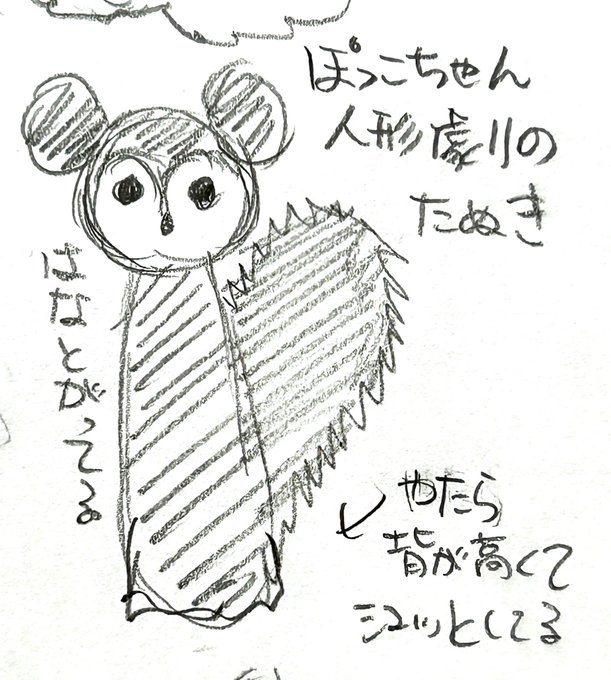 ぽっこちゃん
人形劇リの
たぬき
はなとがってる
やたら
背が高くて
シュッとしてる